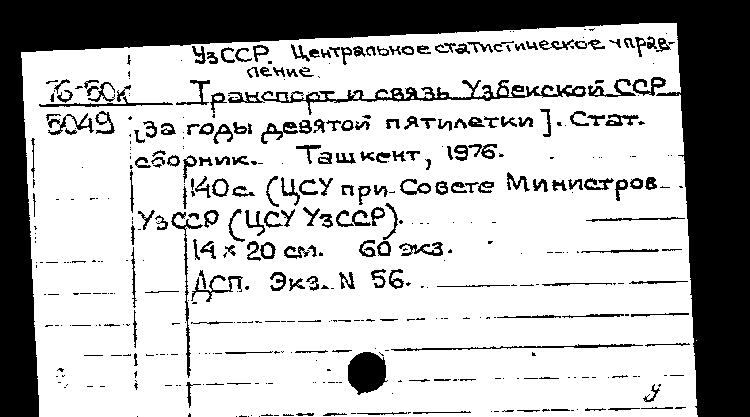 УзССР. Центральное статистическое управ-
ление.
76-50к Транспорт и связь Узбекской ССР
5049 [за годы девятой пятилетки]. Стат.
сборник. Ташкент, 1976.
140с. (ЦСУ при Совете Министров
УзССР (ЦСУ УзССР).
14 × 20 см. 60 экз.
ДСП. Экз. N 56.
у